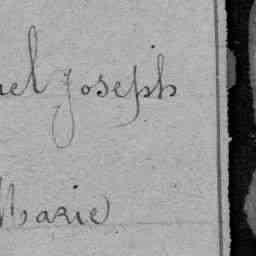 el Joseph
Marie